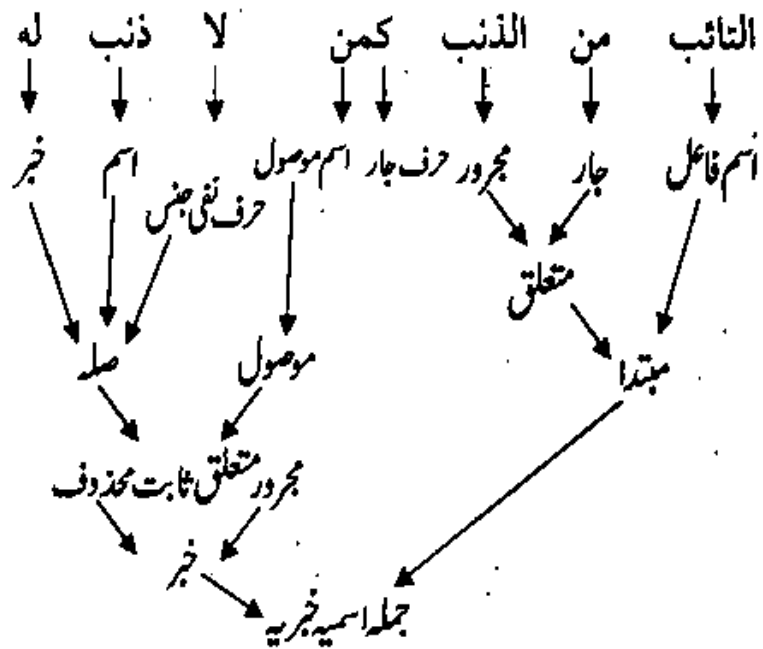 التائب من الذنب كمن لا ذنب له
اسم فاعل جار مجرور حرف جار اسم موصول حرف نفی جنس اسم خبر
متعلق
مبتدا موصول صلہ
مجرور متعلق ثابت محذوف
خبر
جملہ اسمیہ خبریہ